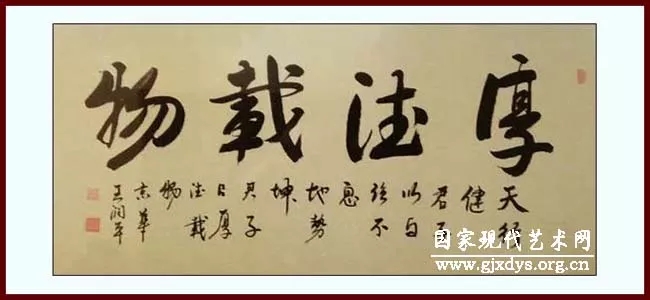 厚德載物
天行
健
君子
以自
強不
息
地勢
坤
君子
以厚
德載
物
京華
王润平
国家现代艺术网
www.gjxdys.org.cn